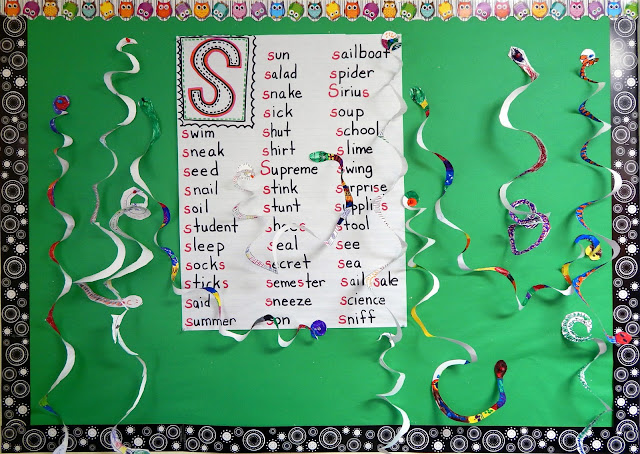 S
swim
sneak
seed
snail
soil
student
sleep
socks
sticks
said
summer
sun
salad
snake
sick
shut
shirt
Supreme
stink
stunt
shoes
seal
secret
semester
sneeze
son
sailboat
spider
Sirius
soup
school
slime
swing
surprise
supplies
stool
see
sea
sail sale
science
sniff